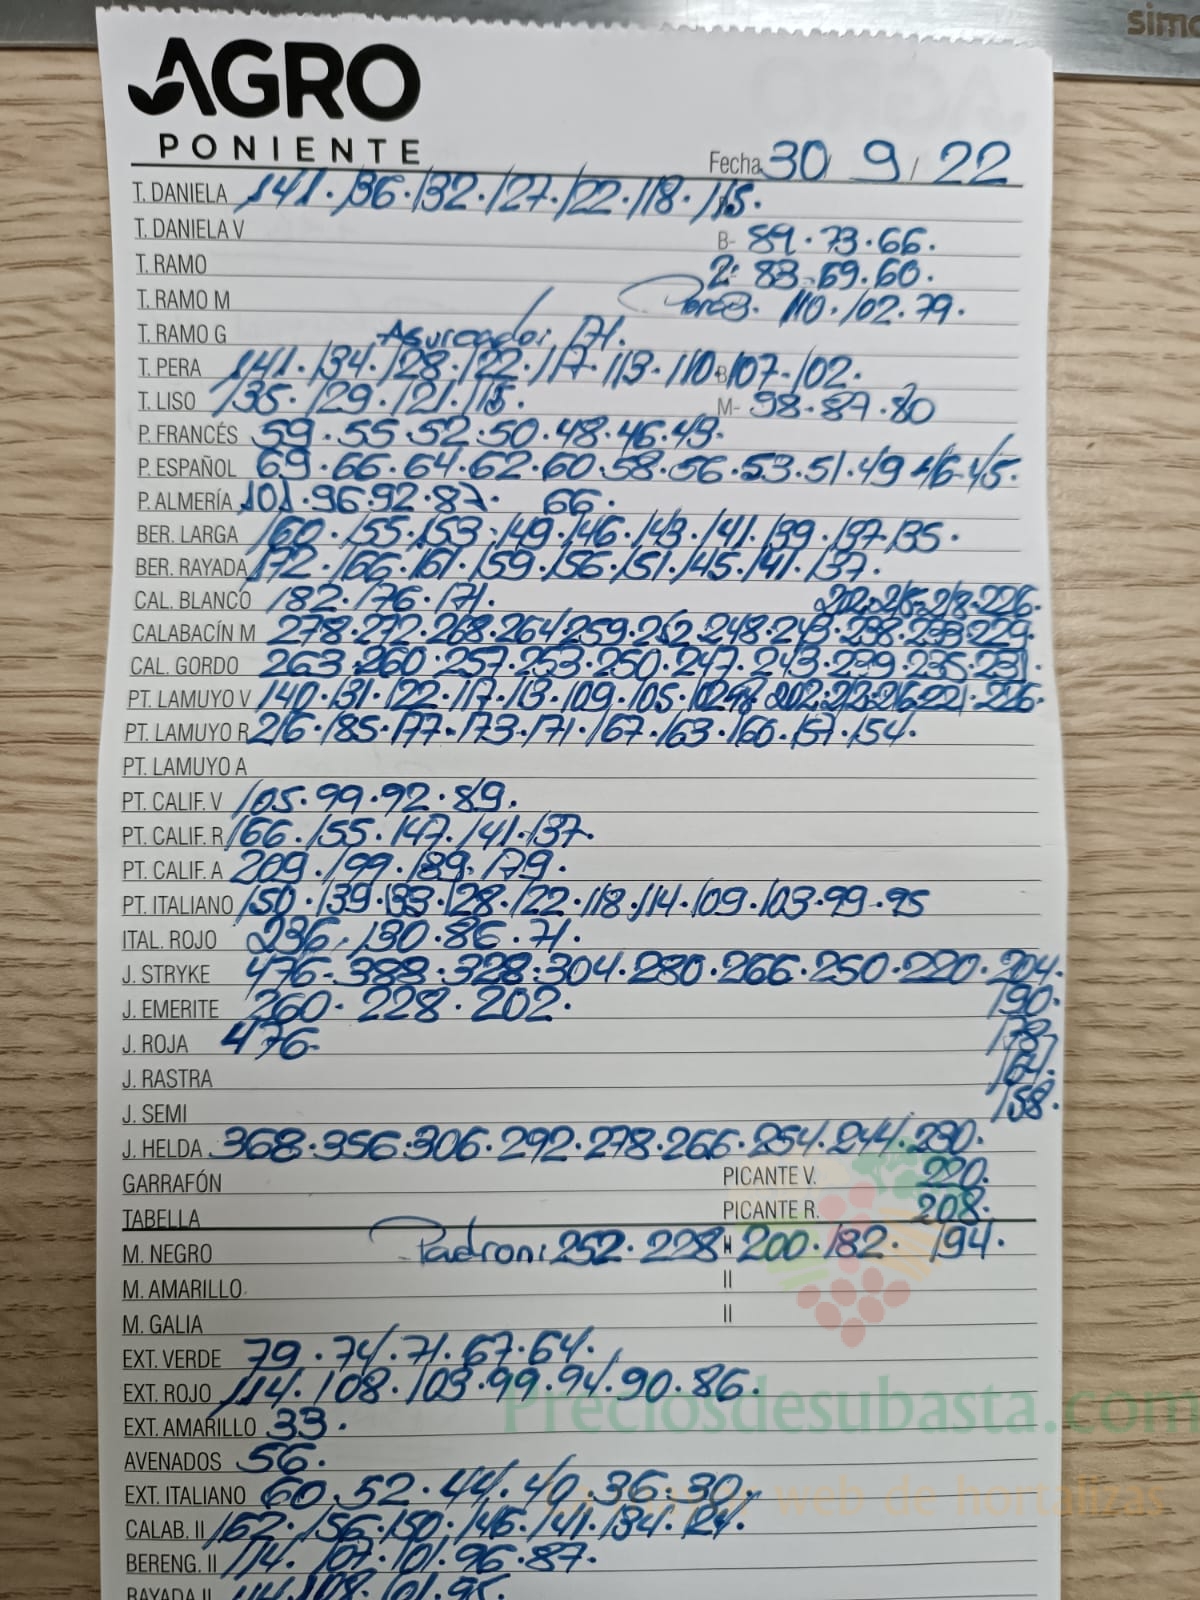 simo
AGRO
PONIENTE
Fecha 30 / 9 / 22
T. DANIELA 141 · 136 · 132 · 127 · 122 · 118 · 115 ·
T. DANIELA V B- 89 · 73 · 66 ·
T. RAMO 2: 83 · 69 · 60 ·
T. RAMO M 110 · 102 · 79 ·
T. RAMO G Asurcado: 171 ·
T. PERA 141 · 134 · 128 · 122 · 117 · 113 · 110 · B 107 · 102 ·
T. LISO 135 · 129 · 121 · 115 · M- 98 · 87 · 80
P. FRANCÉS 59 · 55 · 52 · 50 · 48 · 46 · 43 ·
P. ESPAÑOL 69 · 66 · 64 · 62 · 60 · 58 · 56 · 53 · 51 · 49 · 46 · 45 ·
P. ALMERÍA 101 · 96 · 92 · 87 · 66 ·
BER. LARGA 160 · 155 · 153 · 149 · 146 · 143 · 141 · 139 · 137 · 135 ·
BER. RAYADA 172 · 166 · 161 · 159 · 156 · 151 · 145 · 141 · 137 ·
CAL. BLANCO 182 · 176 · 171 · 202 · 215 · 218 · 226 ·
CALABACÍN M 278 · 272 · 268 · 264 · 259 · 252 · 248 · 243 · 238 · 233 · 229 ·
CAL. GORDO 263 · 260 · 257 · 253 · 250 · 247 · 243 · 239 · 235 · 231 ·
PT. LAMUYO V 140 · 131 · 122 · 117 · 113 · 109 · 105 · 102 · 202 · 213 · 216 · 221 · 226 ·
PT. LAMUYO R 216 · 185 · 177 · 173 · 171 · 167 · 163 · 160 · 157 · 154 ·
PT. LAMUYO A
PT. CALIF. V 105 · 99 · 92 · 89 ·
PT. CALIF. R 166 · 155 · 147 · 141 · 137 ·
PT. CALIF. A 209 · 199 · 189 · 179 ·
PT. ITALIANO 150 · 139 · 133 · 128 · 122 · 118 · 114 · 109 · 103 · 99 · 95
ITAL. ROJO 236 · 130 · 86 · 71 ·
J. STRYKE 476 · 388 · 328 · 304 · 280 · 266 · 250 · 220 · 204 ·
J. EMERITE 260 · 228 · 202 · 190 ·
J. ROJA 476 · 178 ·
J. RASTRA 164 ·
J. SEMI 158 ·
J. HELDA 368 · 356 · 306 · 292 · 278 · 266 · 254 · 244 · 230 ·
GARRAFÓN PICANTE V. 220 ·
TABELLA PICANTE R. 208 ·
M. NEGRO Padron: 252 · 228 · II 200 · 182 · 194 ·
M. AMARILLO II
M. GALIA II
EXT. VERDE 79 · 74 · 71 · 67 · 64 ·
EXT. ROJO 114 · 108 · 103 · 99 · 94 · 90 · 86 ·
Preciosdesubasta.com
EXT. AMARILLO 33 ·
AVENADOS 56 ·
EXT. ITALIANO 60 · 52 · 44 · 40 · 36 · 30 ·
web de hortalizas
CALAB. II 162 · 156 · 150 · 146 · 141 · 134 · 124 ·
BERENG. II 114 · 107 · 101 · 96 · 87 ·
RAYADA II 114 · 108 · 101 · 95 ·